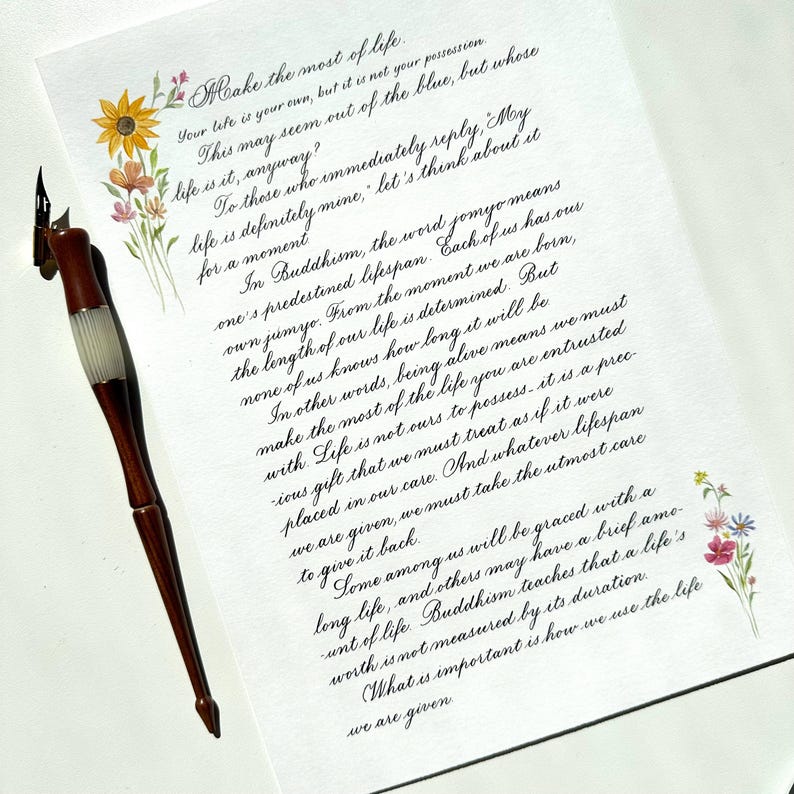 Make the most of life.
Your life is your own, but it is not your possession.
This may seem out of the blue, but whose
life is it, anyway?
To those who immediately reply, "My
life is definitely mine," let's think about it
for a moment
In Buddhism, the word jomyo means
one's predestined lifespan. Each of us has our
own jumyo. From the moment we are born,
the length of our life is determined. But
none of us knows how long it will be.
In other words, being alive means we must
make the most of the life you are entrusted
with. Life is not ours to possess - it is a prec-
-ious gift that we must treat as if it were
placed in our care. And whatever lifespan
we are given, we must take the utmost care
to give it back.
Some among us will be graced with a
long life, and others may have a brief amo-
-unt of life. Buddhism teaches that a life's
worth is not measured by its duration.
What is important is how we use the life
we are given.